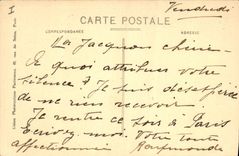 I
Vendredi
CARTE POSTALE
CORRESPONDANCE
ADRESSE
Jacques
À quoi attribuer votre
silence? Je suis désespérée
de ne rien recevoir.
Je rentre ce soir à Paris
Écrivez-moi. Votre toute
affectionnée Raymonde